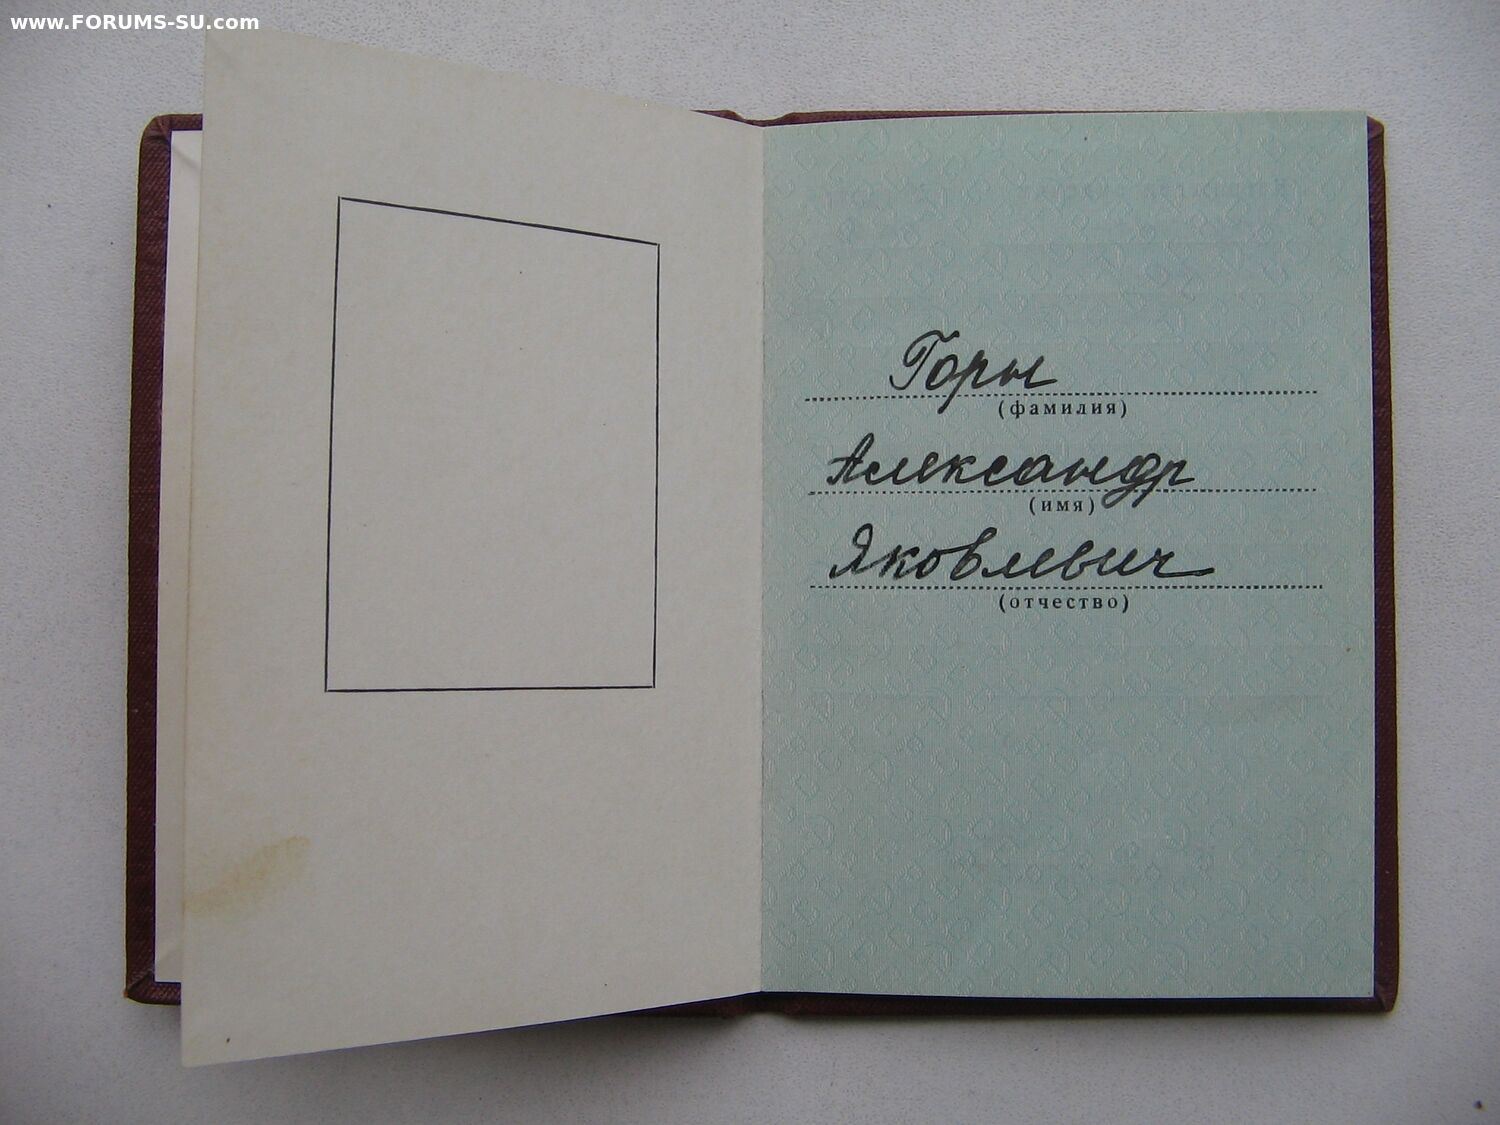 www.FORUMS-SU.com
Горы
(фамилия)
Александр
(имя)
Яковлевич
(отчество)